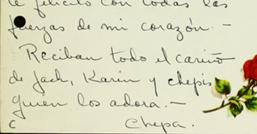 te felicito con todas las
fuerzas de mi corazón. —
Reciban todo el cariño
de Jack, Karin y chepis
quien los adora. —
Chepa.